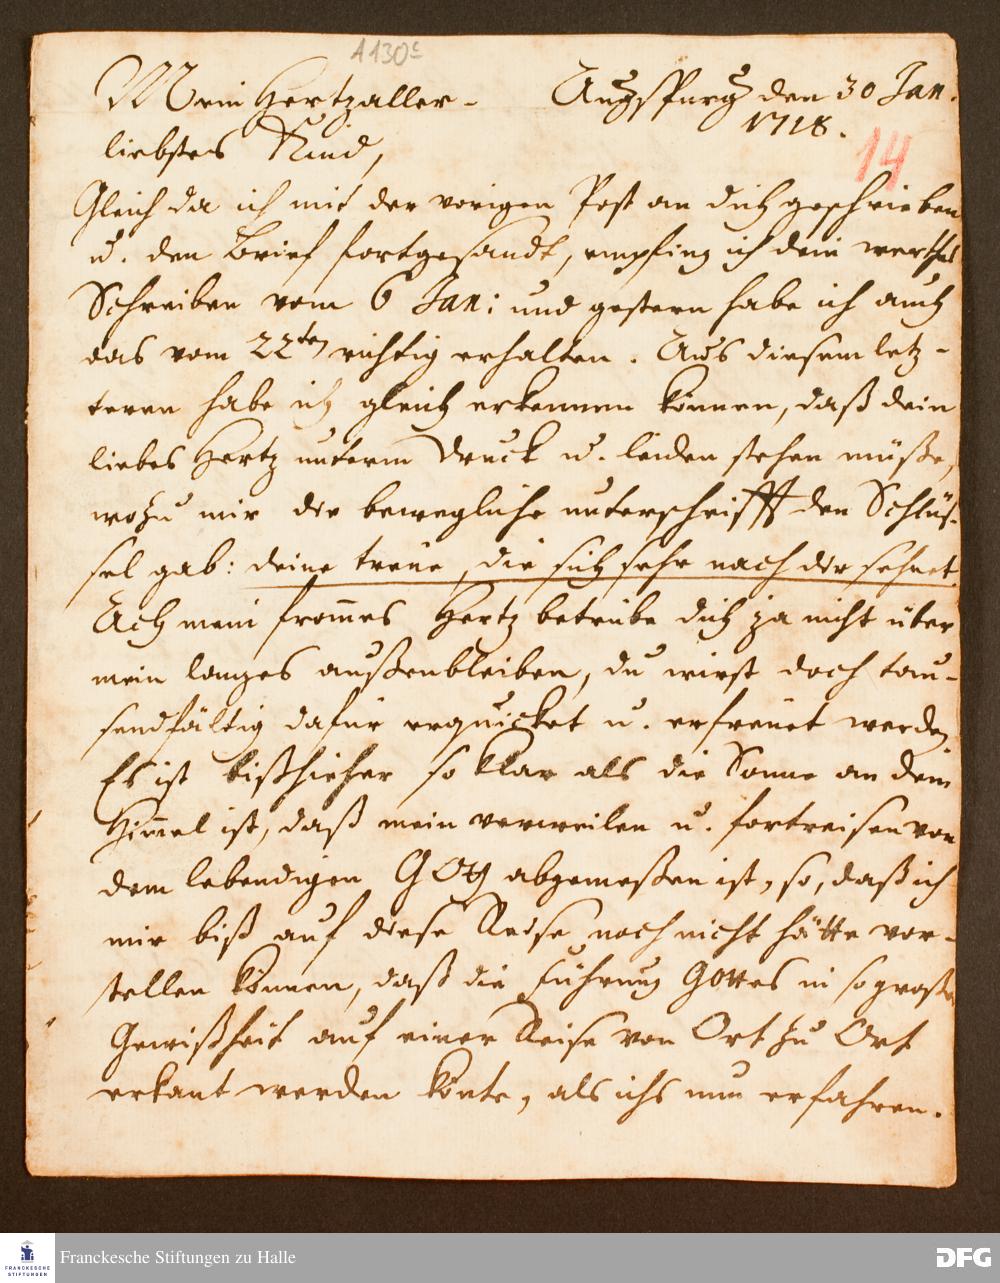 A130c
Mein Hertzaller- Augspurg den 30 Jan.
1718.
liebstes Kind,
14
Gleich da ich mit der vorigen Post an dich geschrieben
u. den Brief fortgesandt, empfing ich dein werthes
Schreiben vom 6 Jan: und gestern habe ich auch
das vom 22ten richtig erhalten. Aus diesem letz-
teren habe ich gleich erkennen können, daß dein
liebes Hertz unterm Druck u. leiden stehen müße,
wozu mir die bewegliche unterschrifft den Schlüs-
sel gab: deine treue, die sich sehr nach dir sehnet.
Ach mein frommes Hertz betrübe dich ja nicht über
mein langes außenbleiben, du wirst doch tau-
sendfältig dafür erquicket u. erfreuet werden.
Es ist bißhieher so klar als die Sonne an dem
Himmel ist, daß mein verweilen u. fortreisen von
dem lebendigen GOtt abgemeßen ist, so, daß ich
mir biß auf diese Reise noch nicht hätte vor-
stellen können, daß die Führung Gottes in so großer
Gewißheit auf einer Reise von Ort zu Ort
erkant werden könte, als ichs nun erfahren.
FRANCKESCHE
STIFTUNGEN
Franckesche Stiftungen zu Halle
DFG